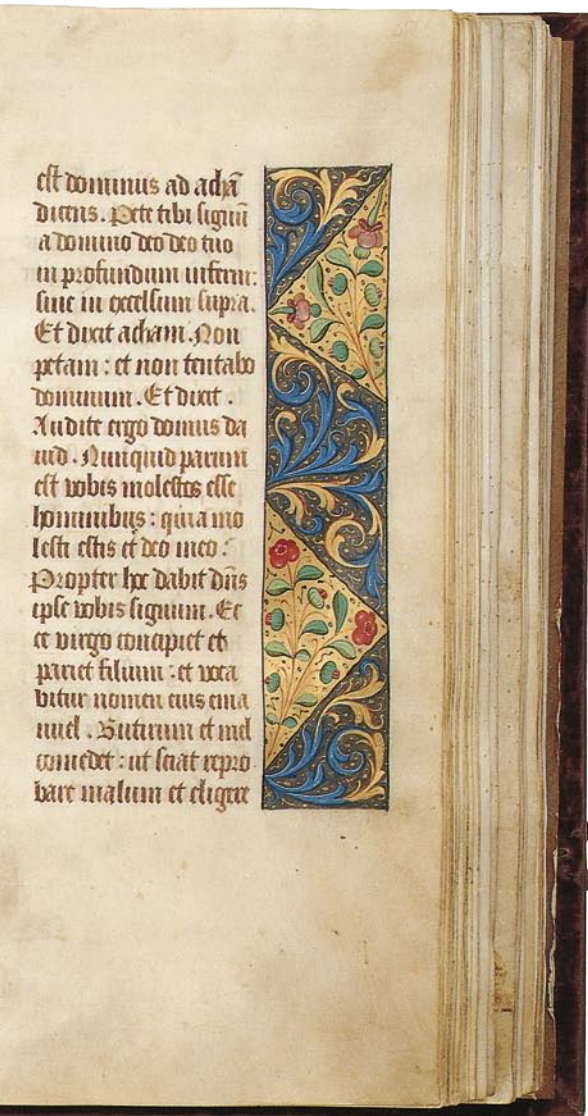 est dominus ad achā
dicens. Pete tibi signū
a domino deo deo tuo
in profundum inferni:
siue in excelsum supra.
Et dixit acham. Non
petam: et non tentabo
dominum. Et dixit.
Audite ergo domus da
uid. Nunquid parum
est vobis molestos esse
hominibus: quia mo
lesti estis et deo meo:
Propter hoc dabit dn̄s
ipse vobis signum. Ec
ce virgo concipiet et
pariet filium: et voca
bitur nomen eius ema
nuel. Buturum et mel
comedet: ut sciat repro
bare malum et eligere